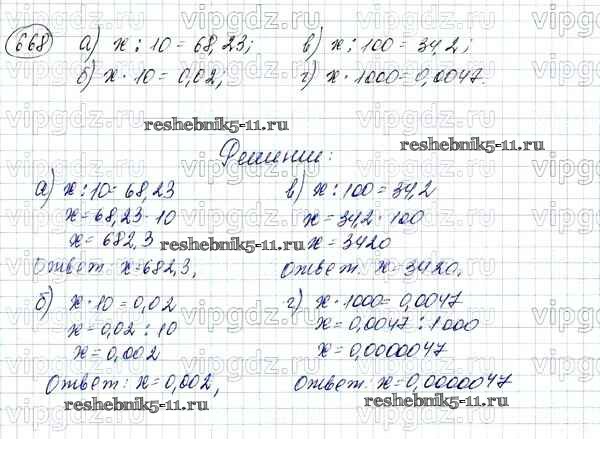 668 а) x : 10 = 68,23; в) x : 100 = 34,2;
б) x · 10 = 0,02; г) x · 1000 = 0,0047.
reshebnik5-11.ru
reshebnik5-11.ru
Решение:
а) x : 10 = 68,23
x = 68,23 · 10
x = 682,3
reshebnik5-11.ru
Ответ: x = 682,3,
в) x : 100 = 34,2
x = 34,2 · 100
x = 3420
Ответ: x = 3420,
б) x · 10 = 0,02
x = 0,02 : 10
x = 0,002
Ответ: x = 0,002,
reshebnik5-11.ru
г) x · 1000 = 0,0047
x = 0,0047 : 1000
x = 0,0000047
Ответ: x = 0,0000047
reshebnik5-11.ru
vipgdz.ru
vipgdz.ru
vipgdz.ru
vipgdz.ru
vipgdz.ru
vipgdz.ru
vipgdz.ru
vipgdz.ru
vipgdz.ru